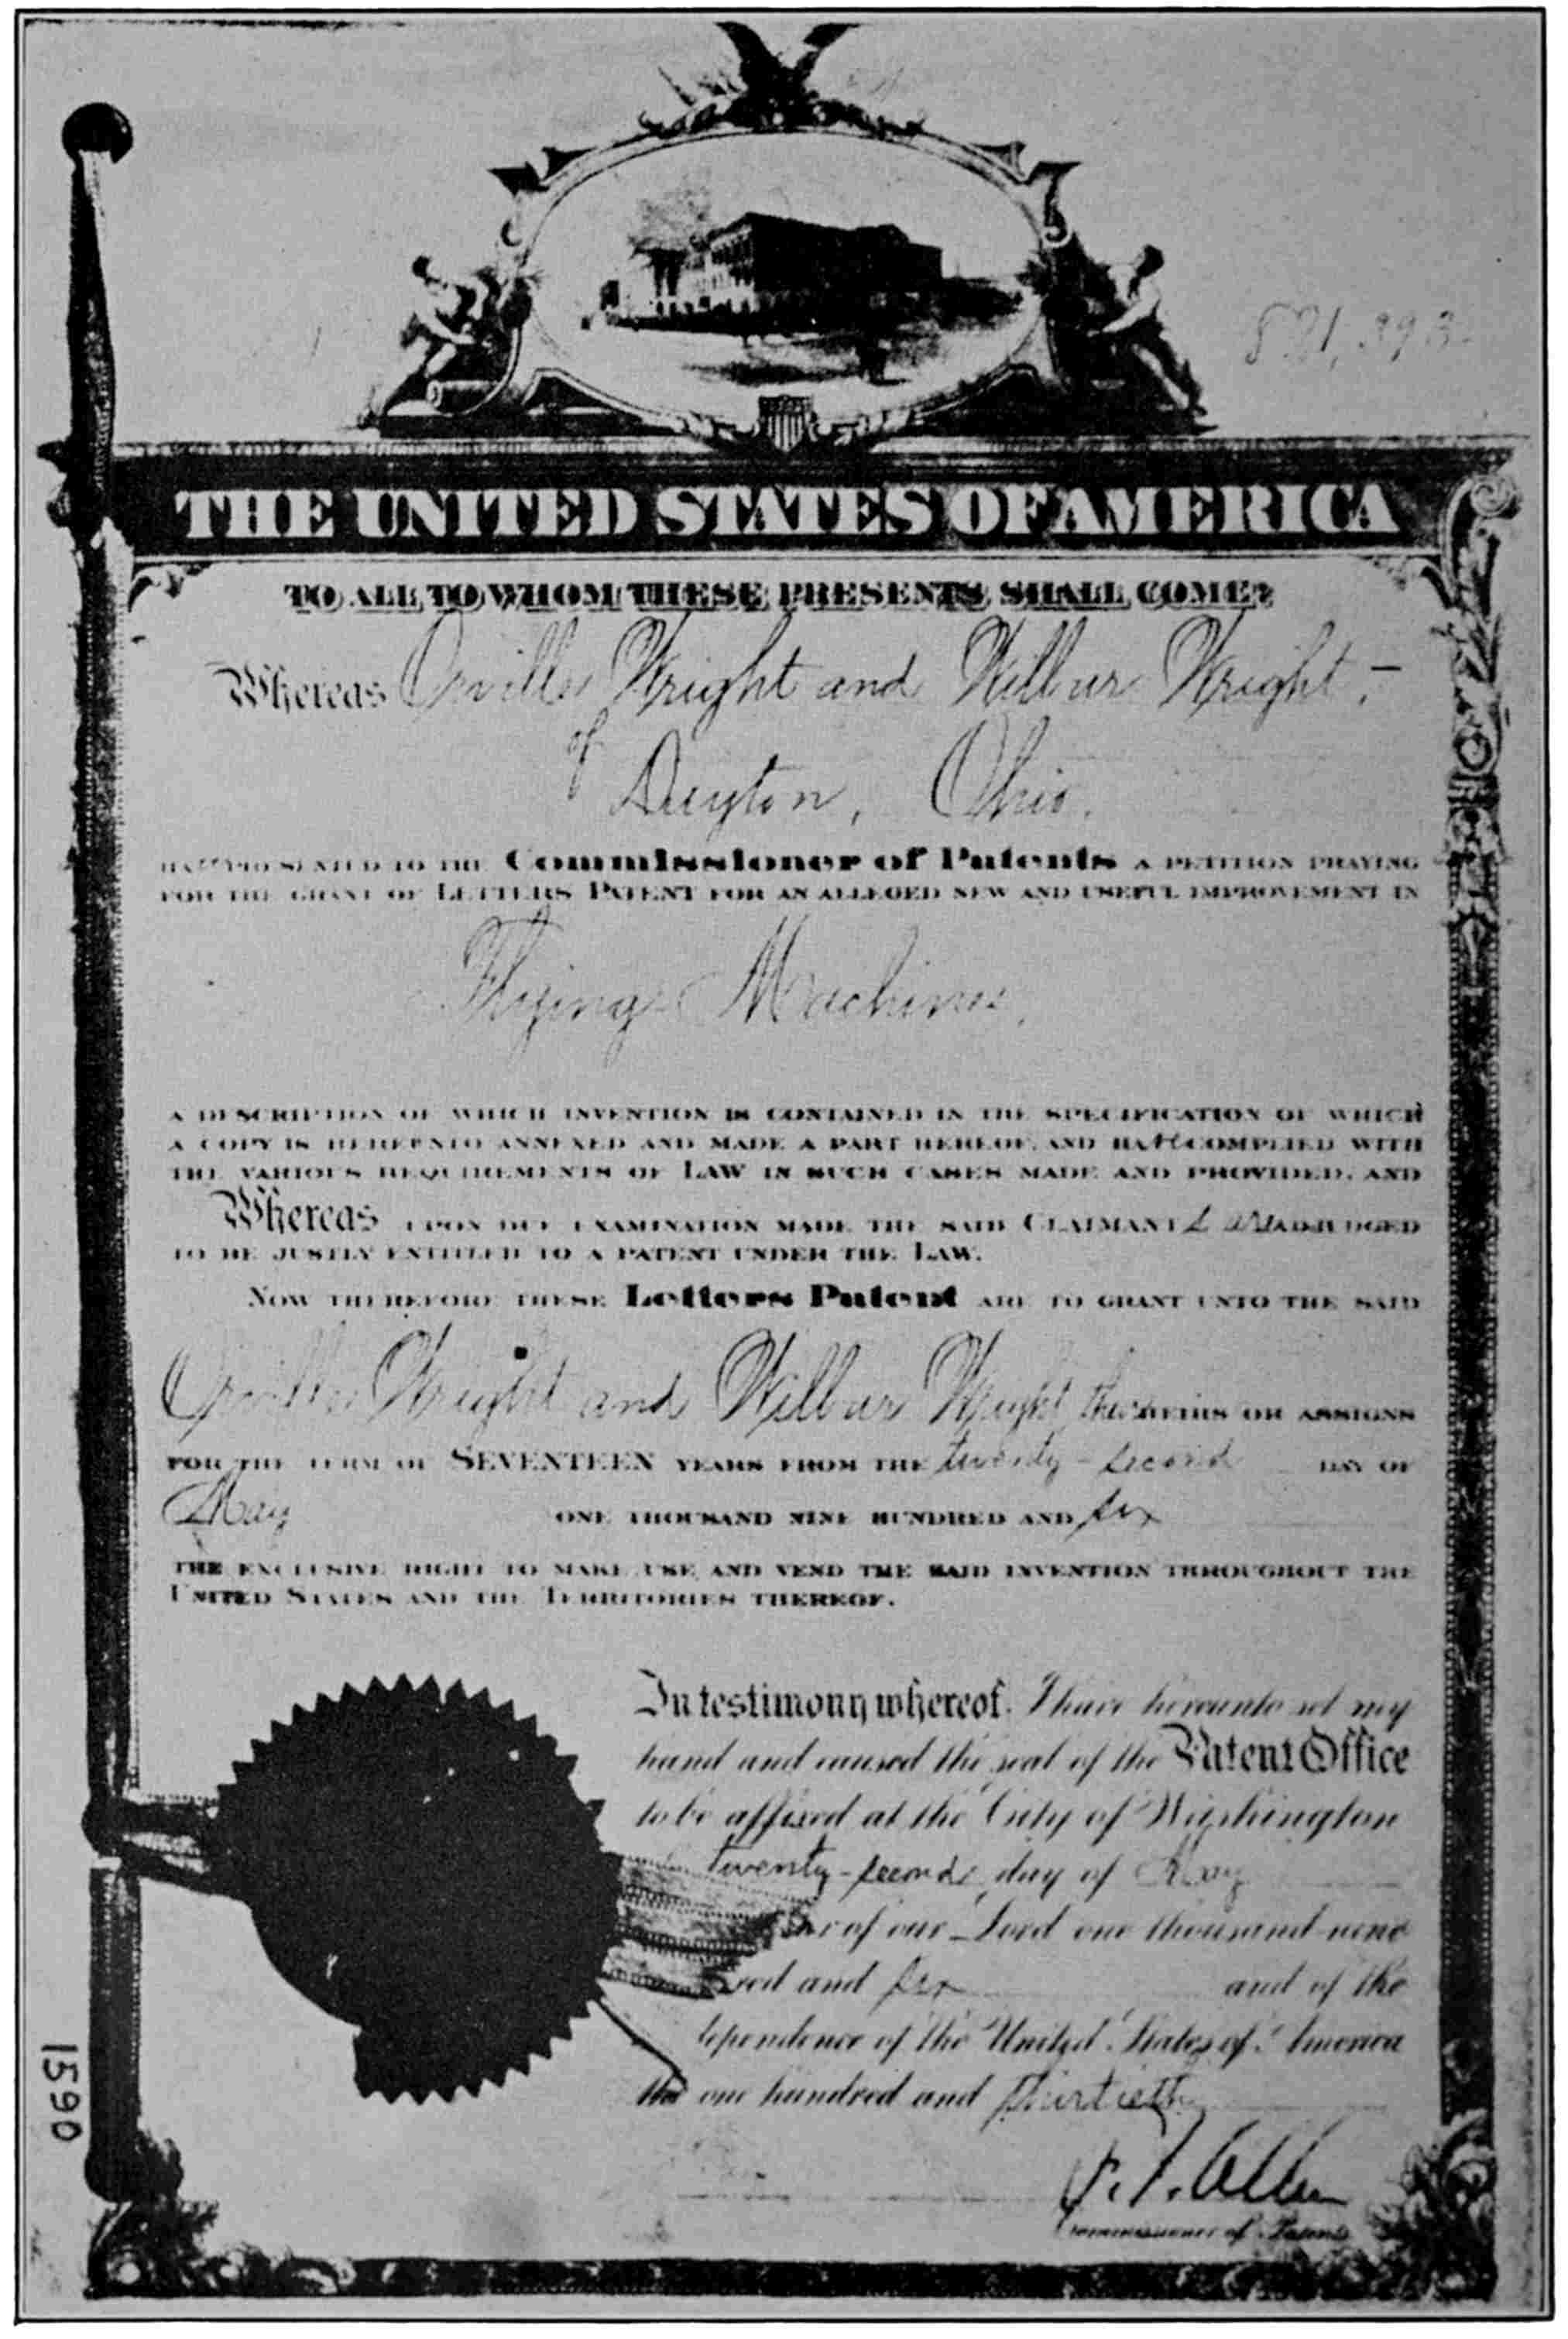 821,393
THE UNITED STATES OF AMERICA
TO ALL TO WHOM THESE PRESENTS SHALL COME:
Whereas Orville Wright and Wilbur Wright,
of
Dayton, Ohio,
PRESENTED TO THE Commissioner of Patents A PETITION PRAYING
FOR THE GRANT OF LETTERS PATENT FOR AN ALLEGED NEW AND USEFUL IMPROVEMENT IN
Flying Machines,
A DESCRIPTION OF WHICH INVENTION IS CONTAINED IN THE SPECIFICATION OF WHICH
A COPY IS HEREUNTO ANNEXED AND MADE A PART HEREOF, AND HAve COMPLIED WITH
THE VARIOUS REQUIREMENTS OF LAW IN SUCH CASES MADE AND PROVIDED, AND
Whereas UPON DUE EXAMINATION MADE THE SAID CLAIMANTs are ADJUDGED
TO BE JUSTLY ENTITLED TO A PATENT UNDER THE LAW.
NOW THEREFORE THESE Letters Patent ARE TO GRANT UNTO THE SAID
Orville Wright and Wilbur Wright, their HEIRS OR ASSIGNS
FOR THE TERM OF SEVENTEEN YEARS FROM THE twenty-second DAY OF
May ONE THOUSAND NINE HUNDRED AND six
THE EXCLUSIVE RIGHT TO MAKE, USE AND VEND THE SAID INVENTION THROUGHOUT THE
UNITED STATES AND THE TERRITORIES THEREOF.
In testimony whereof, I have hereunto set my
hand and caused the seal of the Patent Office
to be affixed at the City of Washington
twenty-second day of May
of our Lord one thousand nine
red and six and of the
dependence of the United States of America
the one hundred and thirtieth.
F. I. Allen
Commissioner of Patents
1590